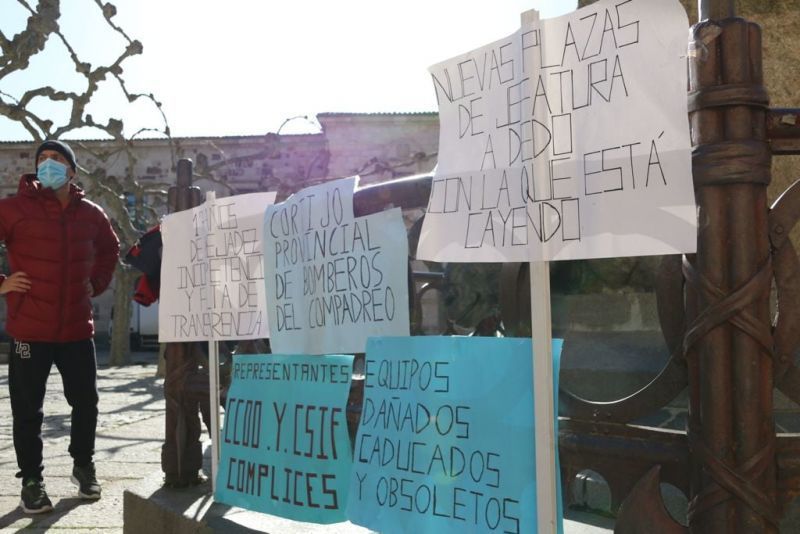 13 AÑOS
DE DEJADEZ
INCOMPETENCIA
Y FALTA DE
TRANSPARENCIA
CORTIJO
PROVINCIAL
DE BOMBEROS
DEL COMPADREO
NUEVAS PLAZAS
DE JEFATURA
A DEDO
CON LA QUE ESTÁ
CAYENDO
REPRESENTANTES
CCOO.Y.CSIF
COMPLICES
EQUIPOS
DAÑADOS
CADUCADOS
Y OBSOLETOS
12